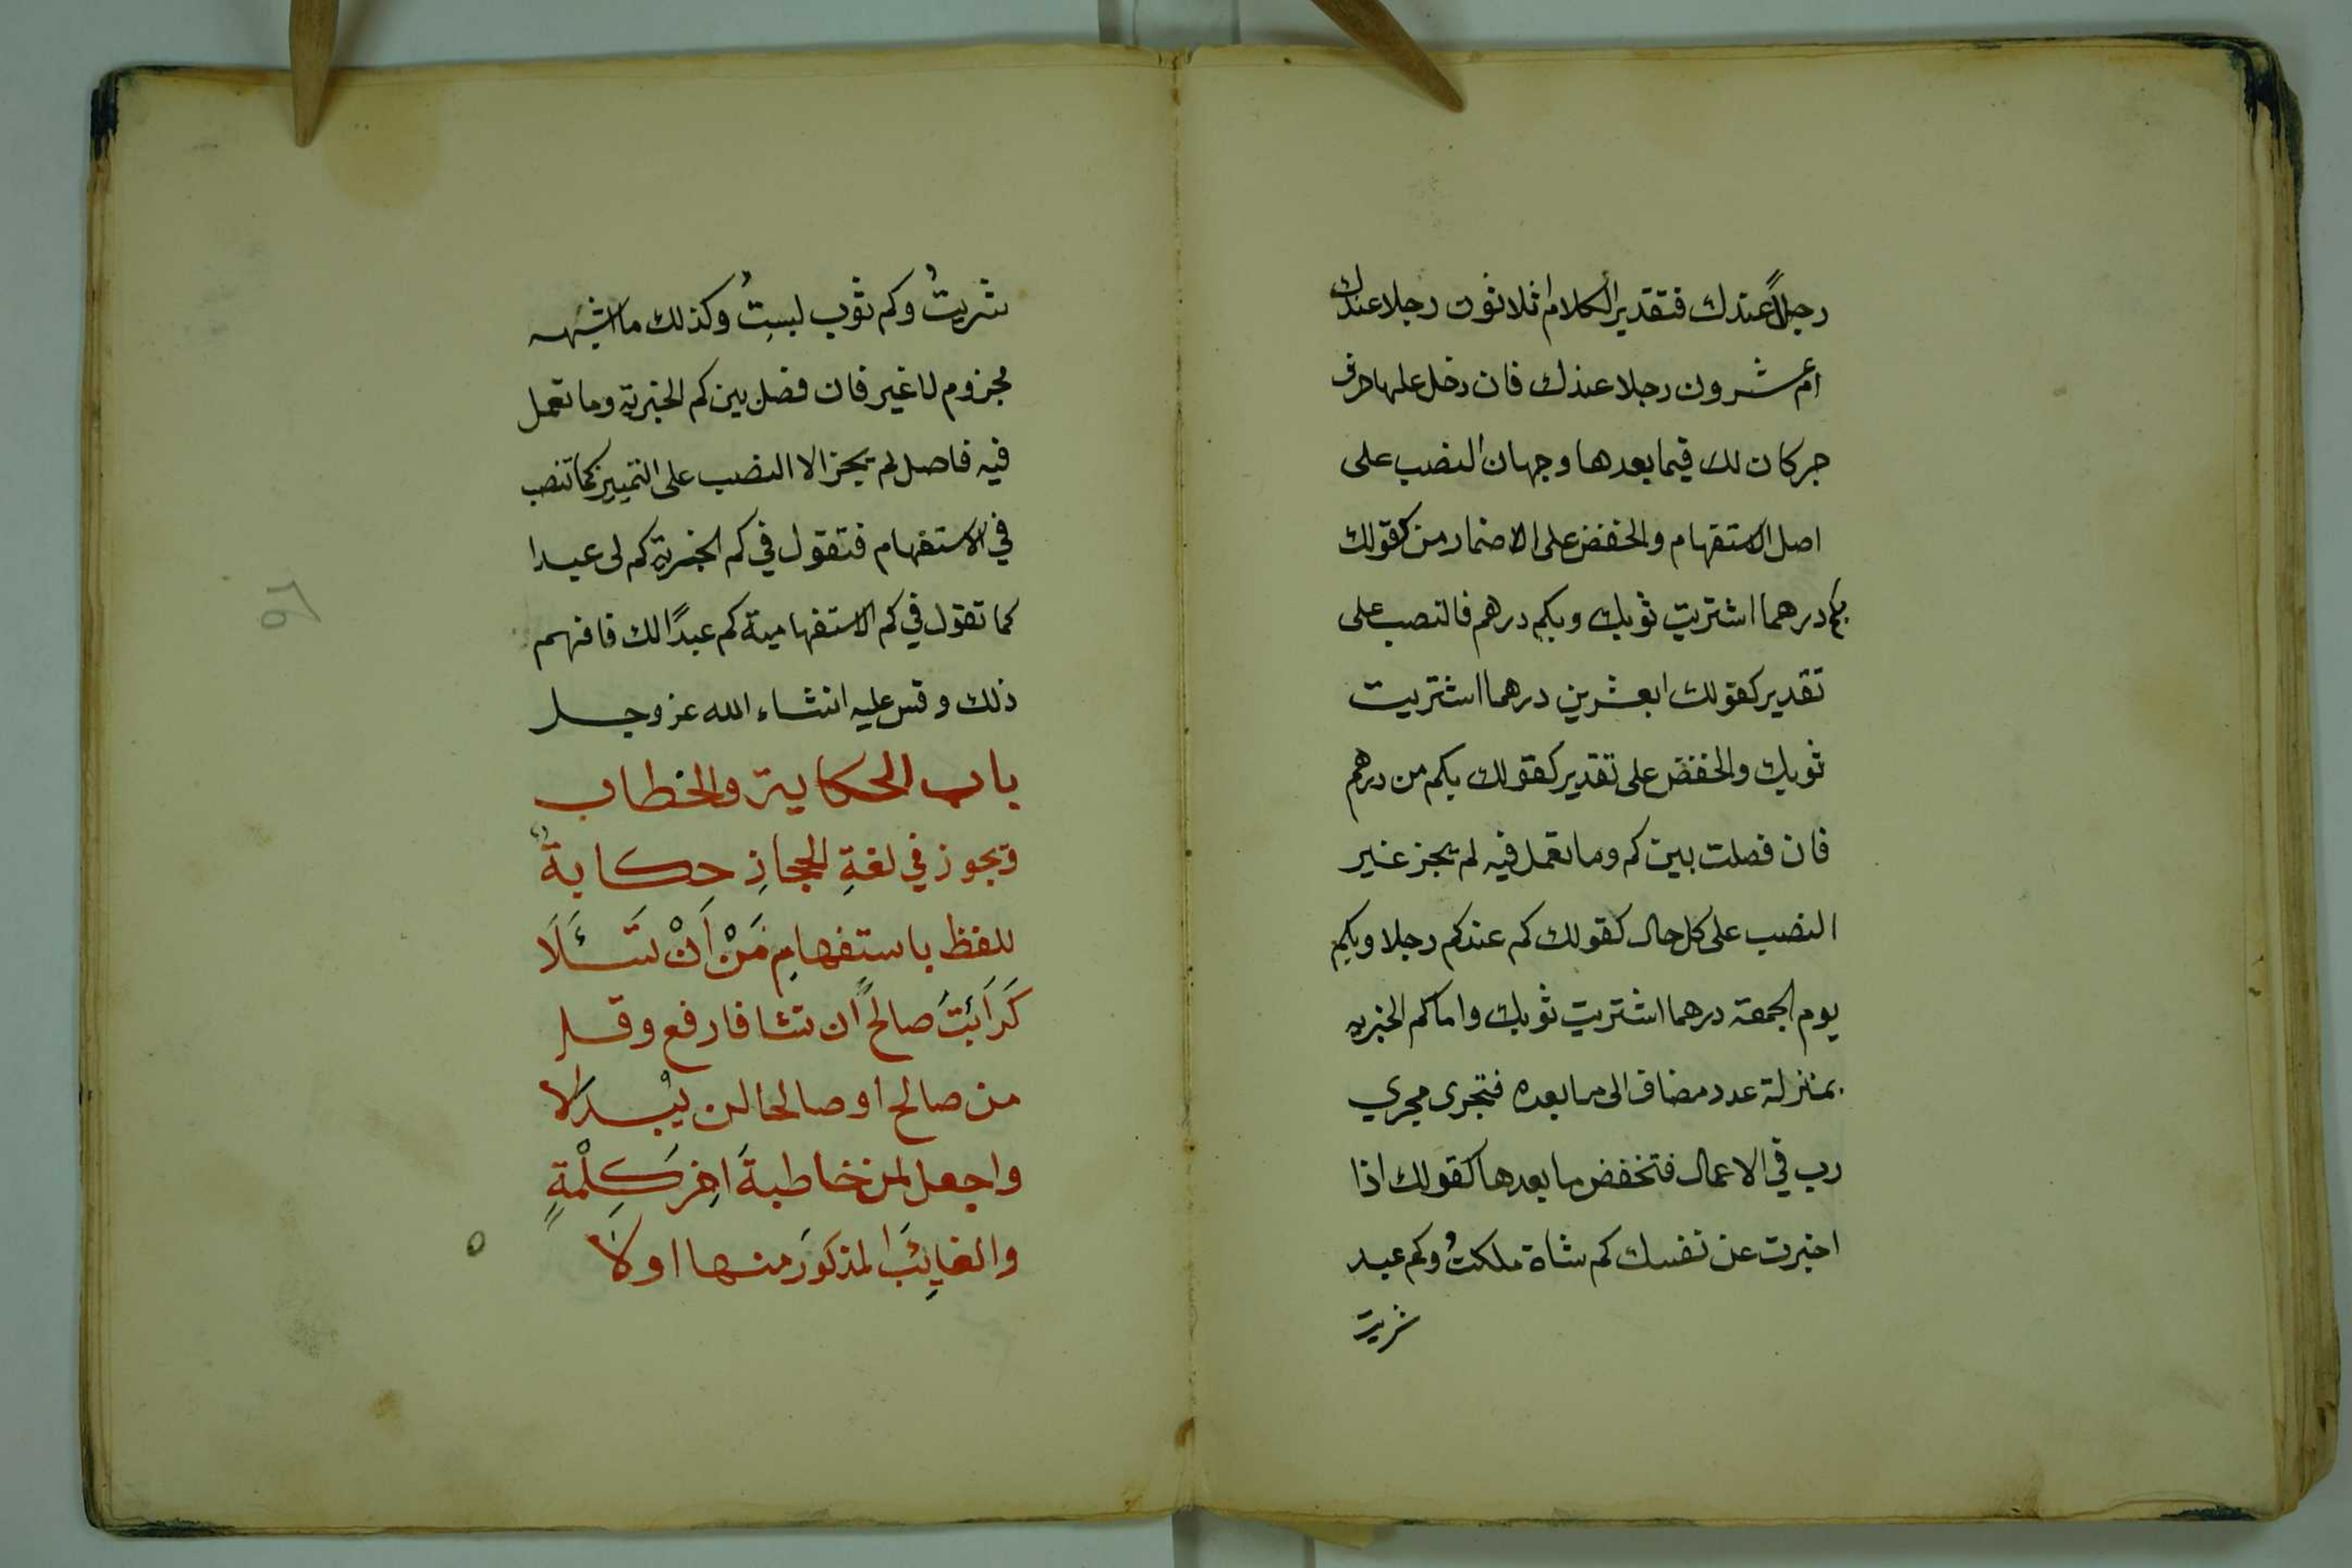 رجلاً عندك فتقدير الكلام اثلاثون رجلا عندك
أم عشرون رجلا عندك فان دخل عليها حرف
جر كان لك فيما بعدها وجهان النصب على
اصل الاستفهام والخفض على الاضمار من كقولك
بكم درهما اشتريت ثوبك وبكم درهم فالنصب على
تقدير كقولك ابعشرين درهما اشتريت
ثوبك والخفض على تقدير كقولك بكم من درهم
فان فصلت بين كم وما تعمل فيه لم يجز غير
النصب على كل حال كقولك كم عندكم رجلا وبكم
يوم الجمعة درهما اشتريت ثوبك واما كم الخبريه
بمنزلة عدد مضاف الى ما بعده فتجرى مجري
رب في الاعمال فتخفض ما بعدها كقولك اذا
اخبرت عن نفسك كم شاة ملكتُ وكم عبد
شريت
شريتُ وكم ثوب لبستُ وكذلك ما اشبهه
مجزوم لا غير فان فصل بين كم الخبرية وما تعمل
فيه فاصل لم يجز الا النصب على التمييز كما تنصب
في الاستفهام فتقول في كم الخبرية كم لى عبدا
كما تقول في كم الاستفهامية كم عبدًا لك فافهم
ذلك وقس عليه انشاء الله عز وجل
باب الحكاية والخطاب
ويجوز في لغةِ الحجازِ حكايةٌ
للفظ باستفهامِ مَنْ اَنْ تَسْئَلَا
كَرَاَيْتَ صالحًا ان تشا فارفع وقل
من صالح او صالحا لن يُبْدَلا
واجعل لمن خاطبتَهُ اخر كِلْمةٍ
والغايِبَ المذكورَ منها اولَا